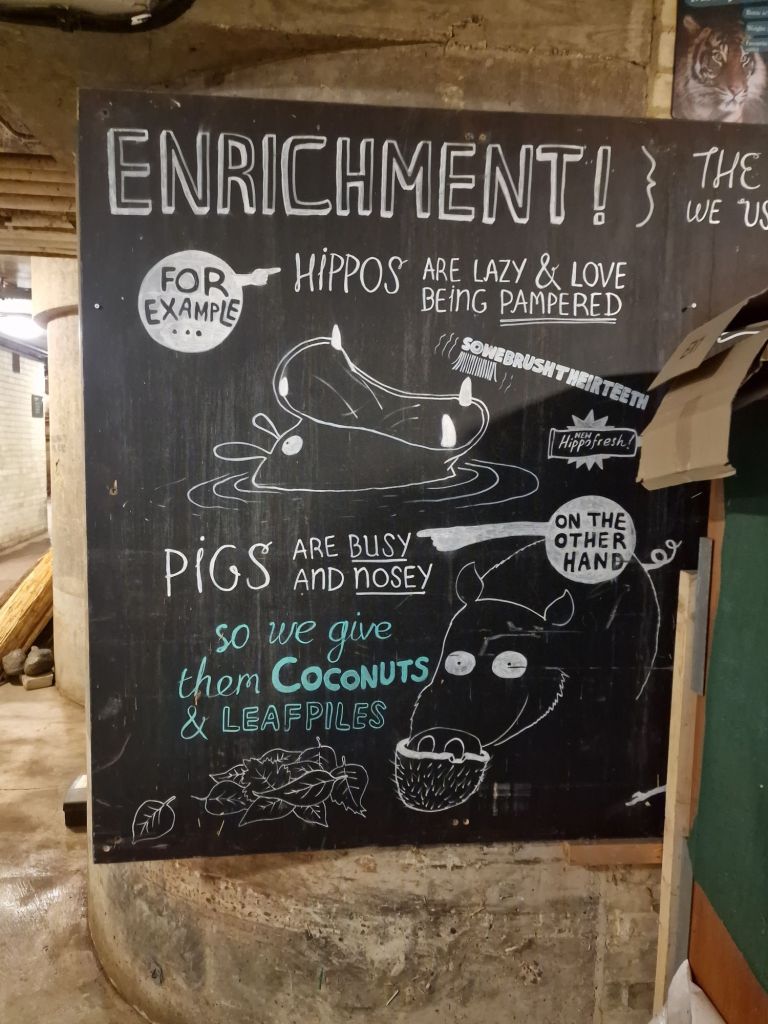 ENRICHMENT!
THE
WE US
FOR
EXAMPLE
...
HIPPOS ARE LAZY & LOVE
BEING PAMPERED
SO WE BRUSH THEIR TEETH
NEW
Hippofresh!
ON THE
OTHER
HAND
PIGS ARE BUSY
AND NOSEY
so we give
them COCONUTS
& LEAFPILES